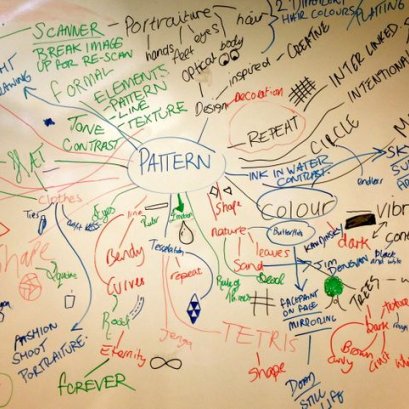 SCANNER
BREAK IMAGE
UP FOR RE-SCAN
Portraiture
hair
2 DIFFERENT
HAIR COLOURS
PLATTING
hands
feet
eyes
body
optical
FORMAL
ELEMENTS
PATTERN
- LINE
- TEXTURE
Design
inspired
CREATING
DRAWING
TONE
CONTRAST
Decoration
REPEAT
INTER LINKED
INTENTIONAL
CIRCLE
PATTERN
INK IN WATER
CONTRAST
endless
clothes
Ties
Eyes
line
Bendy
Curves
Road
Eternity
FOREVER
Tesselation
repeat
Jenga
Shape
nature
leaves
Sand
Dead
Rule of
Thirds
colour
Butterflies
KANDINSKY
dark
JIM
DONOVAN
Black
and white
TREES
FACEPAINT
ON FACE
MIRRORING
TETRIS
Shape
Shape
Square
FASHION
SHOOT
PORTRAITURE
bark
Brown
curly
DOOM
STILL
LIFE